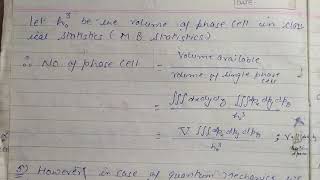 DATE
Let h₀³ be the volume of phase cell in class
ical statistics (M B Statistics)
∴ No. of phase cell = Volume available
volume of single phase cell
= ∭dxdydz ∭dpx dpy dpz
h₀³
= V ∭dpx dpy dpz ; V = ∭
h₀³
However, in case of quantum mechanics we